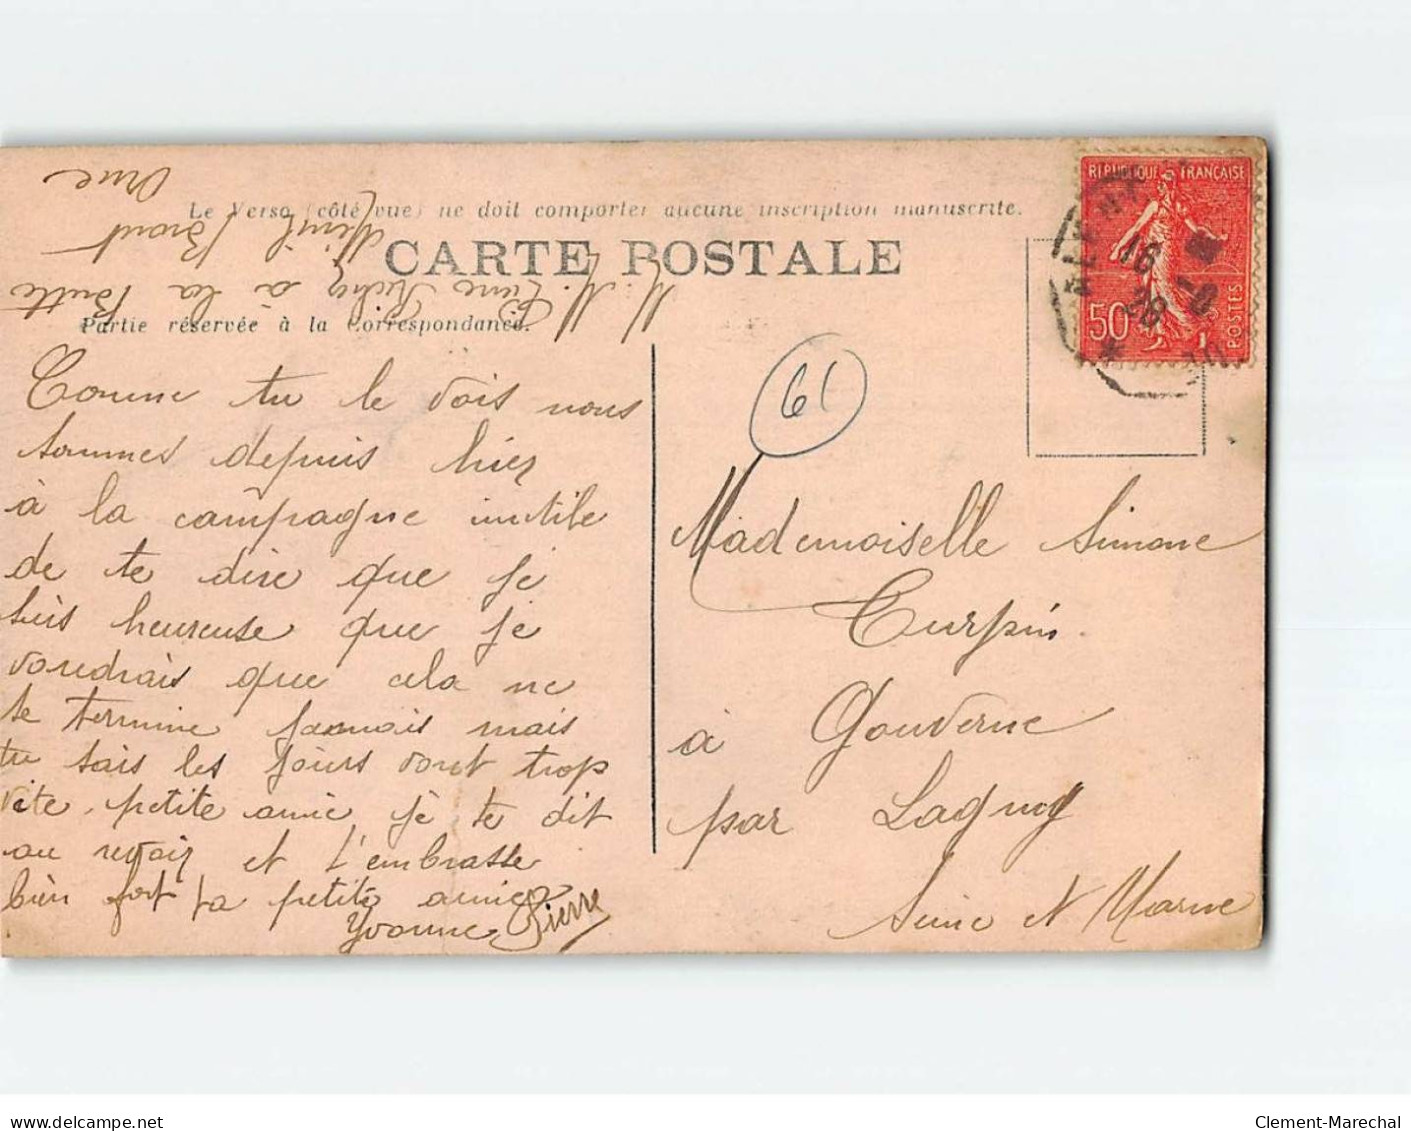 Orne
Ménil Broust
M. Mme Riché à la Poulte
Le Verso (côté vue) ne doit comporter aucune inscription manuscrite.
CARTE POSTALE
Partie réservée à la Correspondance.
RÉPUBLIQUE FRANÇAISE
50
POSTES
16
28
61
Comme tu le vois nous
sommes depuis hier
à la campagne inutile
de te dire que je
suis heureuse que je
voudrais que cela ne
se termine jamais mais
tu sais les jours vont trop
vite, petite amie je te dit
au revoir et t'embrasse
bien fort ta petite amie
Yvonne Pierre
Mademoiselle Simone
Turpin
à Gouverne
par Lagny
Seine et Marne
Clement-Marechal